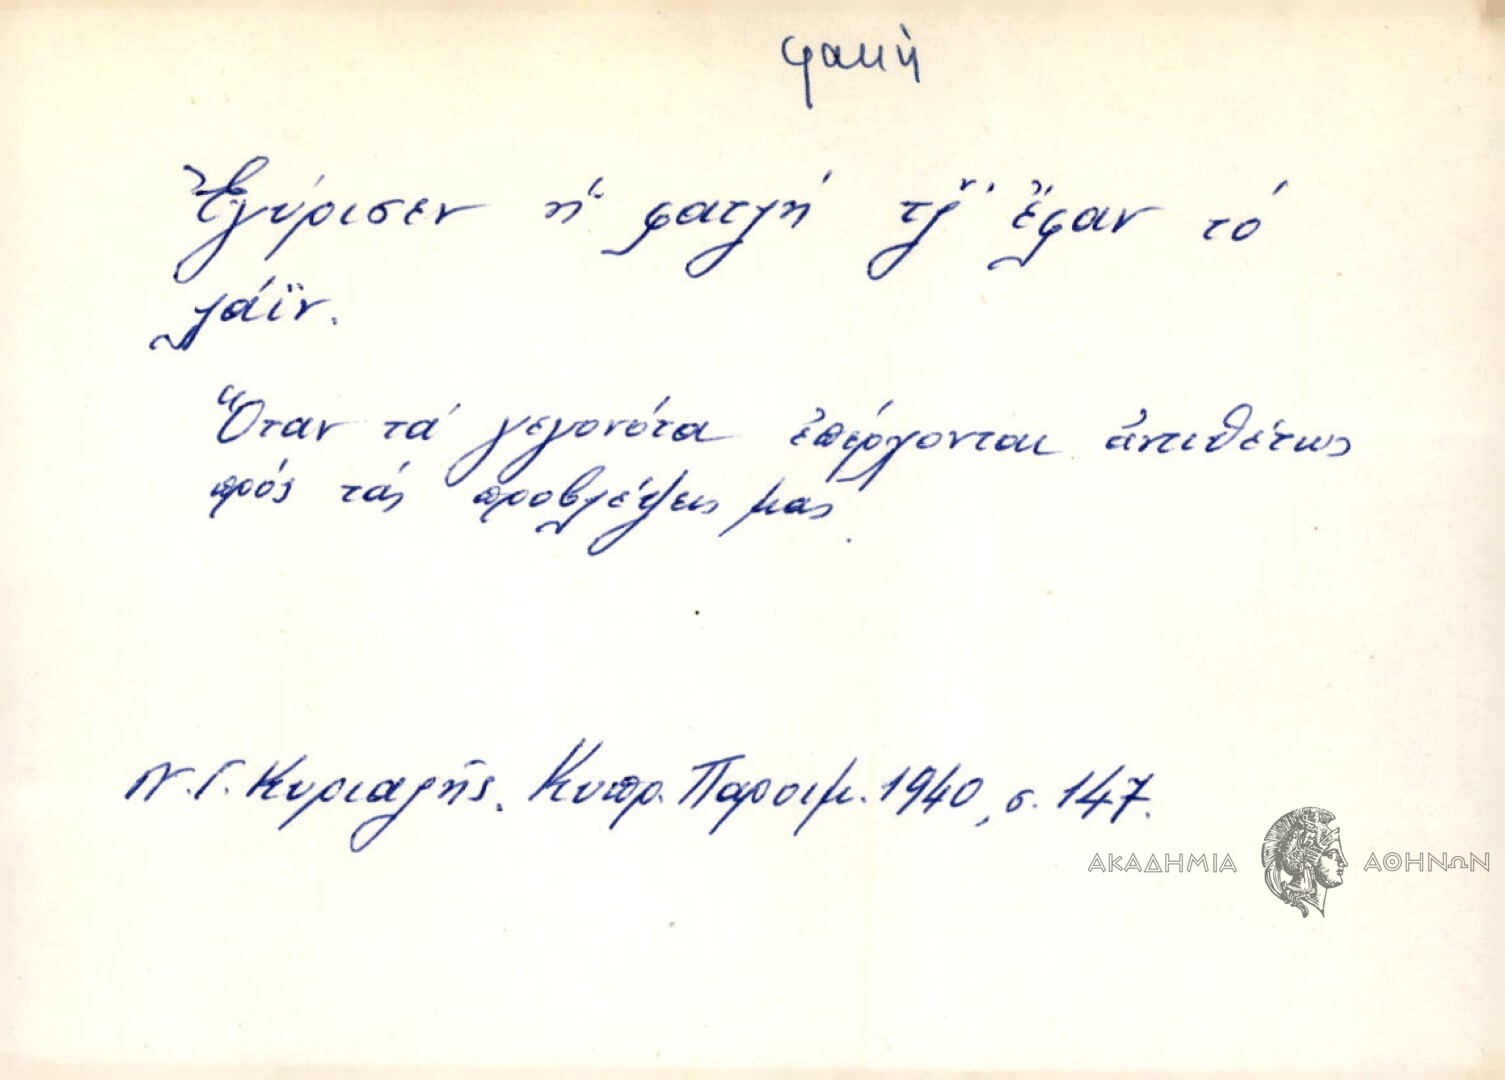 φακή
Ἐγύρισεν ἡ φατζή τζ̌' ἔφαν τό
λάϊν.
Ὅταν τά γεγονότα ἐπέρχονται ἀντιθέτως
πρός τάς προβλέψεις μας.
Ν. Γ. Κυριαζῆς. Κυπρ. Παροιμ. 1940, σ. 147.
ΑΚΑΔΗΜΙΑ ΑΘΗΝΩΝ